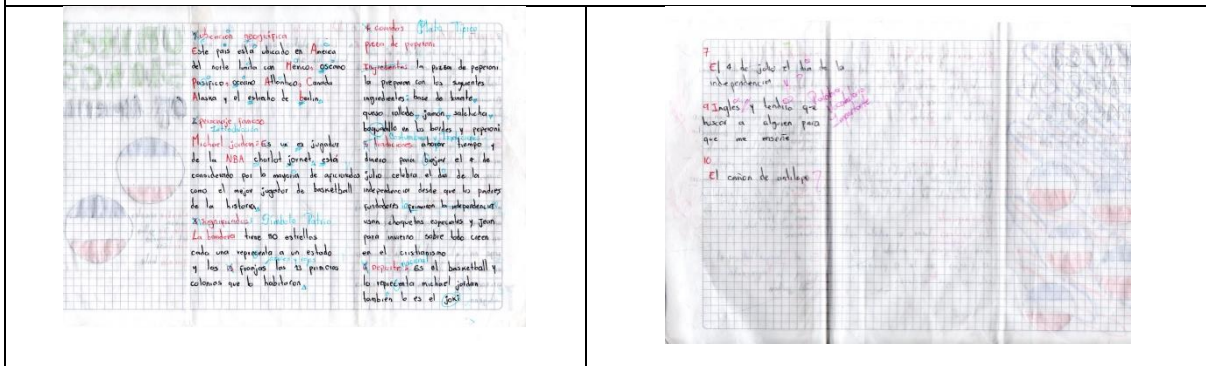 Ubicación geográfica
Este país está ubicado en America
del norte limita con Mexico, oceano
Pasifico, oceano Atlantico, Canada
Alaska y el estrecho de
personaje famoso
Introducción
Michael jordan: Es un ex jugador
de la NBA charlot jornet, está
considerado por la mayoria de aficionados
como el mejor jugador de basketball
de la historia
Simbolo Patrio
La bandera tiene 50 estrellas
cada una representa a un estado
y las 13 franjas las 13 primeras
colonias que lo habitaron
comidas Plato Tipico
pizza de peperoni
Ingredientes: la pizza de peperoni
la preparan con los siguientes
ingredientes: base de
queso rallado, jamón, salchicha,
bocadillo en los bordes y peperoni
Tradiciones ahorar tiempo y
dinero para viajar el 4 de
julio celebra el dia de la
independencia desde que los padres
fundadores firmaron la independencia
usan chaquetas especiales y jean
para invierno sobre todo creen
en el cristianismo
Deporte nacional: Es el basketball y
lo representa michael jordan
tambien lo es el joki
7
El 4 de julio el dia de la
independencia
9 Ingles y tendria que
buscar a alguien para
que me enseñe
10
El cañon de antilope